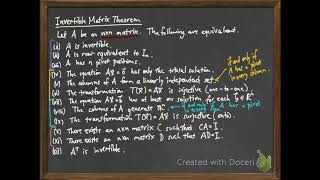 Invertible Matrix Theorem
Let A be an nxn matrix. The following are equivalent.
(i) A is invertible.
(ii) A is row-equivalent to In
(iii) A has n pivot positions.
(iv) The equation Ax=0 has only the trivial solution.
(v) The columns of A form a linearly independent set.
if and only if A has a pivot in every column.
(vi) The transformation T(x)=Ax is injective (one-to-one)
(vii) The equation Ax=b has at least one solution for each b∈ℝⁿ
(viii) The columns of A generate ℝⁿ.
if and only if A has a pivot in every
(ix) The transformation T(x)=Ax is surjective (onto).
(x) There exists an nxn matrix C such that CA=I.
(xi) There exists an nxn matrix D such that AD=I.
(xii) Aᵀ is invertible.
Created with Doceri